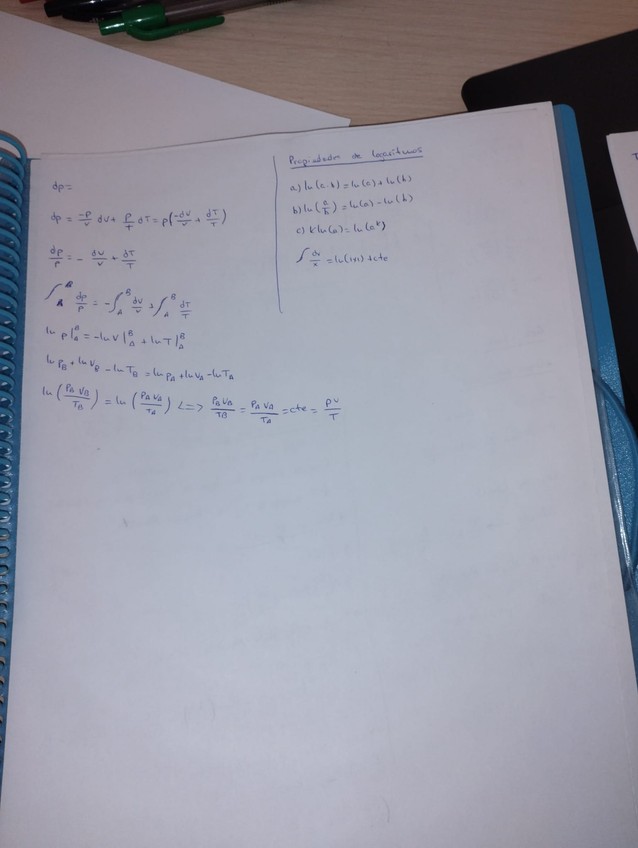 dp=
dp = -P/V dV + P/T dT = P(-dV/V + dT/T)
dp/P = - dV/V + dT/T
∫_A^B dp/P = -∫_A^B dV/V + ∫_A^B dT/T
ln P|_A^B = -ln V|_A^B + ln T|_A^B
ln P_B + ln V_B - ln T_B = ln P_A + ln V_A - ln T_A
ln(P_B V_B/T_B) = ln(P_A V_A/T_A) <=> P_B V_B/T_B = P_A V_A/T_A = cte = PV/T
Propiedades de logaritmos
a) ln(a·b) = ln(a) + ln(b)
b) ln(a/b) = ln(a) - ln(b)
c) k ln(a) = ln(a^k)
∫ dx/x = ln(|x|) + cte
T